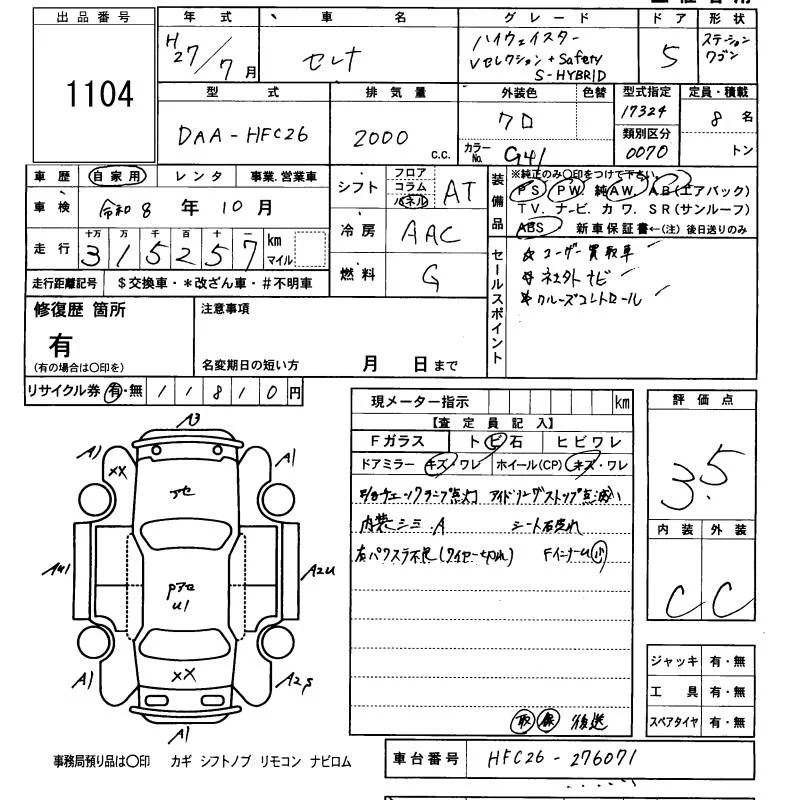 出品番号
1104
年式
H27/7月
車名
セレナ
グレード
ハイウェイスター
Vセレクション+Safety
S-HYBRID
ドア
5
形状
ステーション
ワゴン
型式
DAA-HFC26
排気量
2000 c.c.
外装色
クロ
色替
カラーNo.
G41
型式指定
17324
類別区分
0070
定員・積載
8 名
トン
車歴
自家用 レンタ 事業.営業車
車検
令和8年10月
走行
十万 万 千 百 十
315257
km
マイル
走行距離記号 $交換車・*改ざん車・#不明車
シフト
フロア
コラム
パネル
AT
冷房
AAC
燃料
G
装備品
※純正のみ○印をつけて下さい。
PS PW. 純AW. AB(エアバック)
TV. ナービ. カワ. SR(サンルーフ)
ABS 新車保証書←(注)後日送りのみ
セールスポイント
☆ユーザー買取車
ナビ
クルーズコントロール
修復歴 箇所
有
(有の場合は○印を)
注意事項
名変期日の短い方 月 日まで
リサイクル券 有・無 11810円
現メーター指示 km
【査定員記入】
Fガラス トビ石 ヒビワレ
ドアミラー キズ・ワレ ホイール(CP) キズ・ワレ
内装シミ.A
右パワスラ不良(ワイヤー切れ) Fインナー小
取 保 後送
評価点
3.5
内装 外装
C C
ジャッキ 有・無
工具 有・無
スペアタイヤ 有・無
A3
A1
A1
XX
A2U
U1
XX
A1
A1
事務局預り品は○印 カギ シフトノブ リモコン ナビロム
車台番号 HFC26-276071